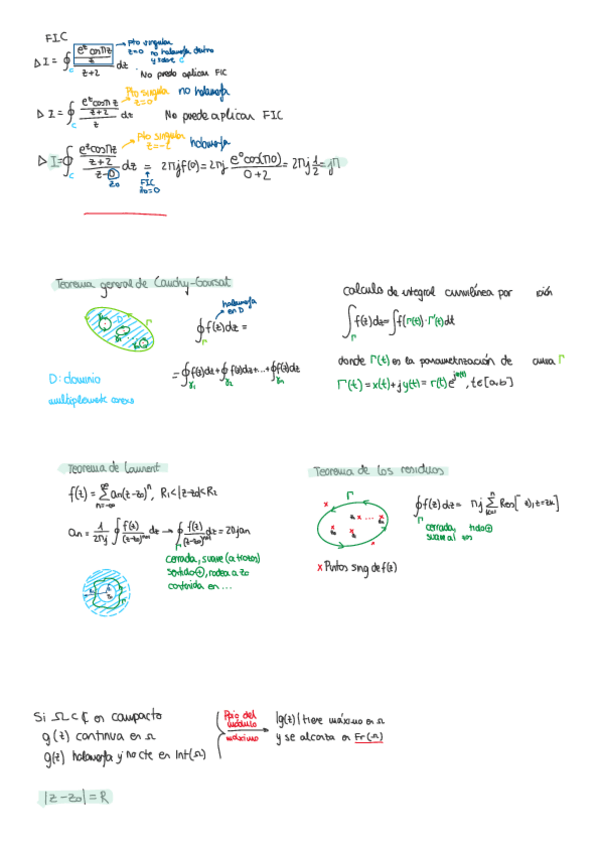 FIC
▷ I = ∮_C (e^z cos πz / z) / (z+2) dz → pto singular z=0 no holomorfa dentro y sobre C
No puedo aplicar FIC
▷ I = ∮_C (e^z cos πz / (z+2)) / z dz Pto singular z=0 no holomorfa No puede aplicar FIC
▷ I = ∮_C (e^z cos πz / (z+2)) / (z-0) dz = 2πj f(0) = 2πj e^0 cos(π0) / (0+2) = 2πj 1/2 = jπ
pto singular z=-2 holomorfa
z0
FIC z0=0
Teorema general de Cauchy-Goursat
D
∮_Γ f(z)dz =
holomorfa en D
= ∮_γ1 f(z)dz + ∮_γ2 f(z)dz + ... + ∮_γn f(z)dz
D: dominio
multiplemente conexo
Calculo de integral curvilínea por ción
∫_Γ f(z)dz = ∫ f(Γ(t))·Γ'(t)dt
donde Γ(t) es la parametrización de curva Γ
Γ(t) = x(t)+jy(t) = r(t)e^, t∈[a,b]
Teorema de Laurent
f(z) = Σ_{n=-∞}^{∞} an(z-z0)^n, R1<|z-z0|<R2
an = 1/2πj ∮ f(z)/(z-z0)^{n+1} dz → ∮_Γ f(z)/(z-z0)^{n+1} dz = 2πjan
cerrada, suave (a trozos)
sentido ⊕, rodea a z0
contenida en ...
Teorema de los residuos
Γ
∮_Γ f(z)dz = πj Σ_{k=1}^{n} Res[ z), z=zk]
cerrada, tido ⊕
suave al zos
x Puntos sing de f(z)
Si Ω⊂ℂ en compacto
g(z) continua en Ω
g(z) holomorfa y no cte en Int(Ω)
Ppio del módulo máximo
|g(z)| tiene máximo en Ω
y se alcanza en Fr(Ω)
|z-z0|=R